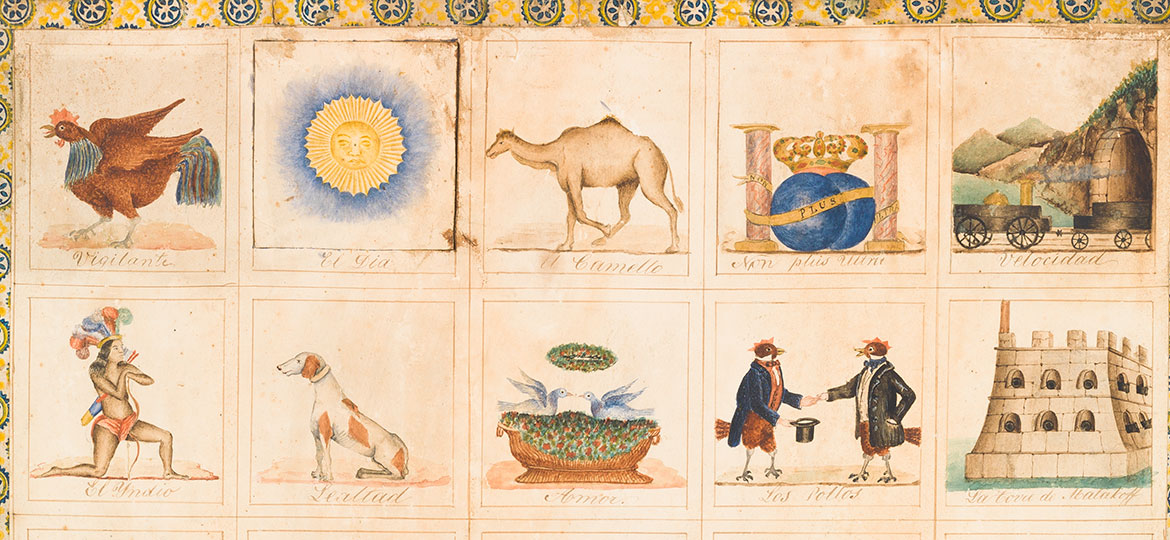 Vigilante
El Dia
El Camello
NON
PLUS
Non plus Ultra
Velocidad
El Yndio
Lealtad
Amor.
Los Pollos
La torre de Malakoff